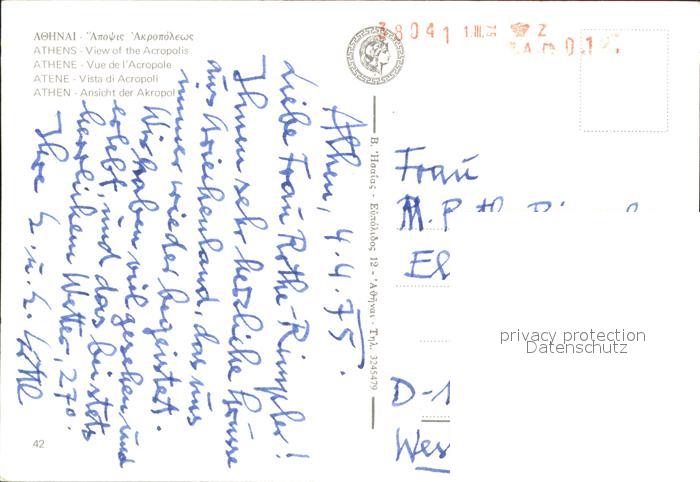 ΑΘΗΝΑΙ - Ἄποψις Ἀκροπόλεως
ATHENS - View of the Acropolis
ATHENE - Vue de l'Acropole
ATENE - Vista di Acropoli
ATHEN - Ansicht der Akropol
38041
Athen, 4.4.75.
Liebe Frau Rothe-Rimpler!
Ihnen sehr herzliche Grüsse
aus Griechenland, das uns
immer wieder begeistert.
Wir haben viel gesehen und
erlebt, und das bei stets
herrlichem Wetter, 27°.
Ihre
Β. Ἡσαΐας - Εὐπόλιδος 12 - Ἀθῆναι - Τηλ. 3245479
Frau
M.
El
D-1
Wes
privacy protection
Datenschutz
42